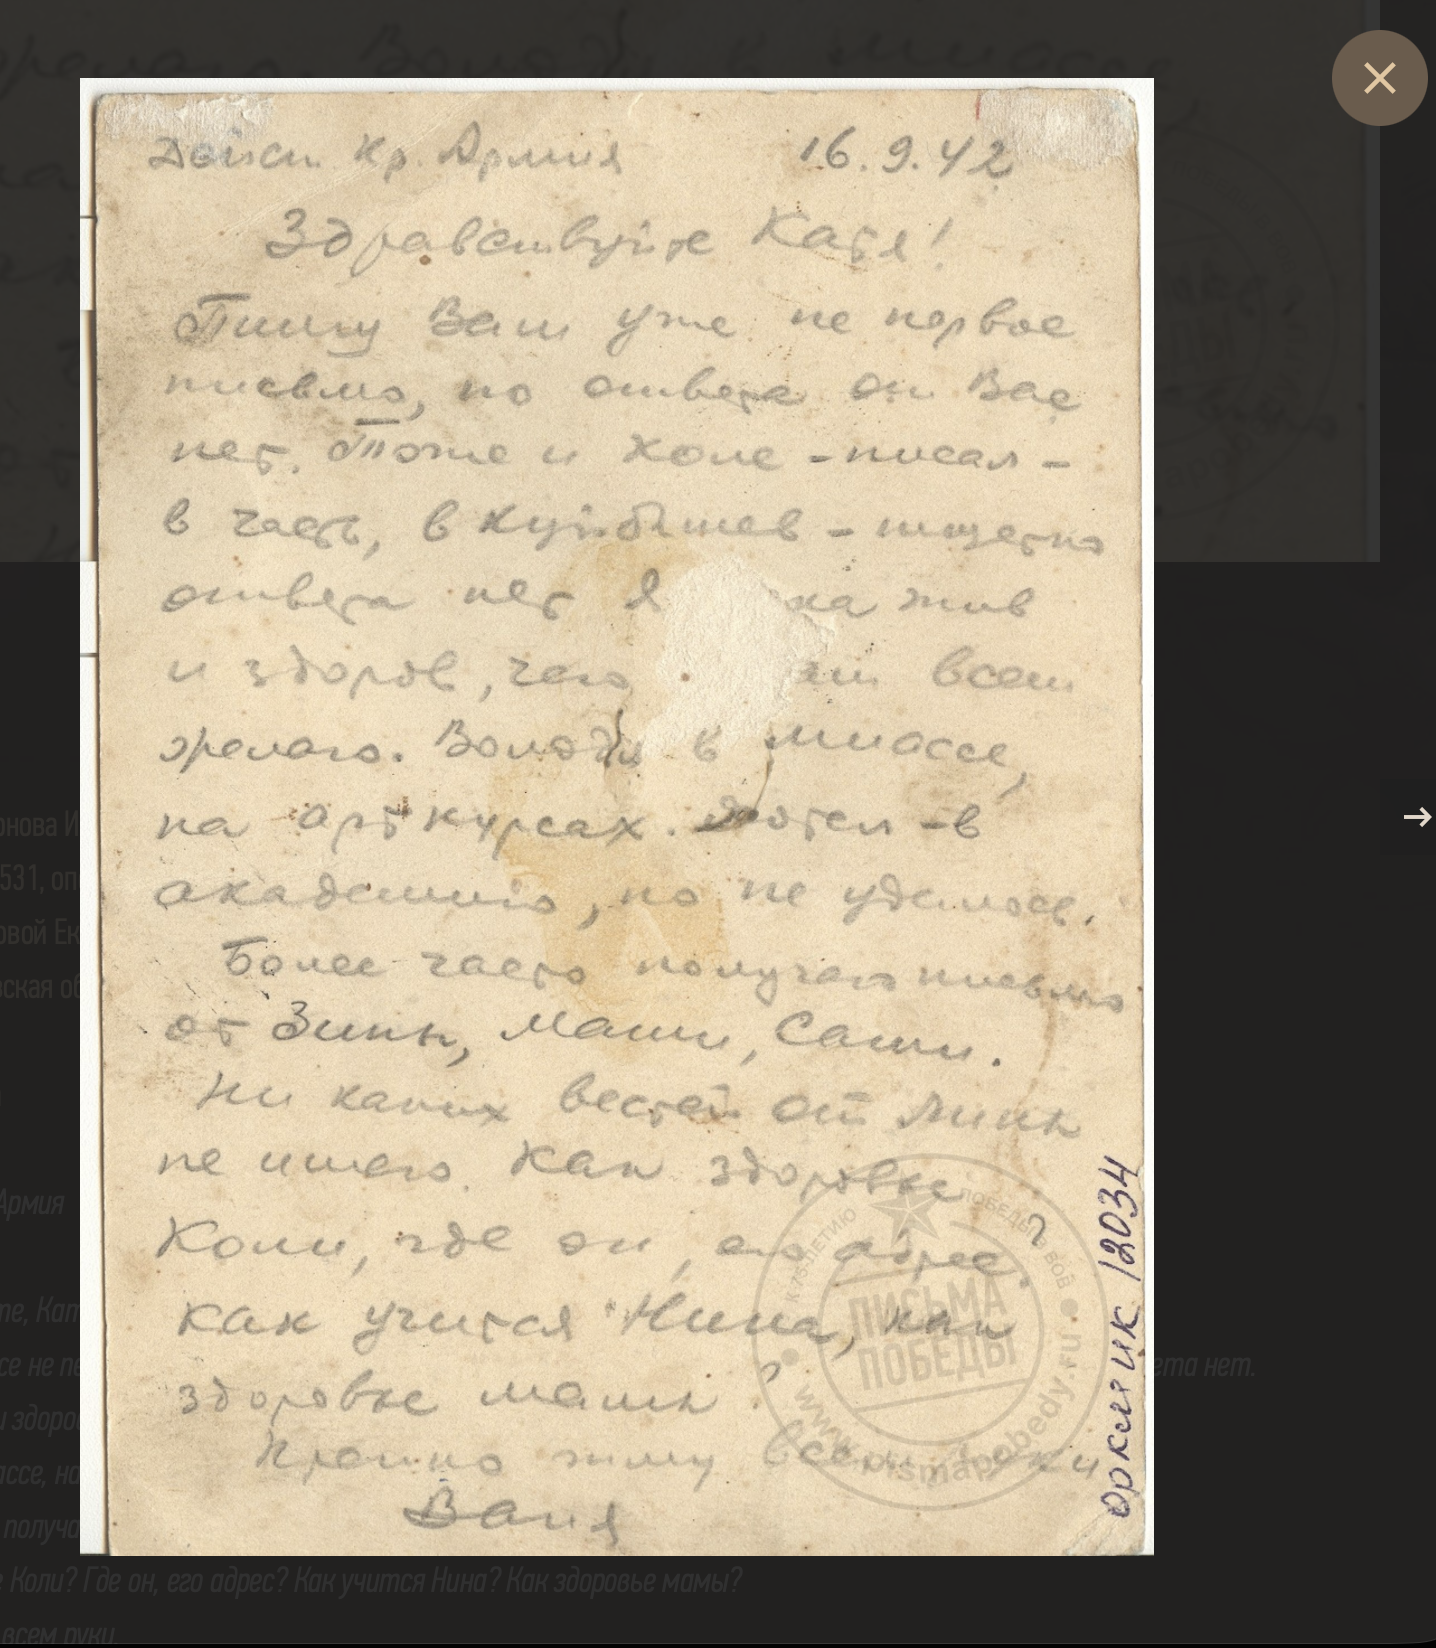 Дейст. Кр. Армия 16.9.42
Здравствуйте Катя!
Пишу Вам уже не первое
письмо, но ответа от Вас
нет. Тоже и Коле - писал -
в часть, в Куйбышев - тщетно
ответа нет Я ка жив
и здоров, чего ам всем
желаю. Володя в Миассе,
на арткурсах. Хотел - в
академию, но не удалось.
Более часто получаю письмо
от Зины, Маши, Саши.
Ни каких вестей от Лины
не имею. Как здоровье
Коли, где он, его адрес?
Как учится Нина, как
здоровье мамы?
Крепко жму всем руки
Ваня
оркмиик 12034
К 75-ЛЕТИЮ ПОБЕДЫ В ВОВ
ПИСЬМА
ПОБЕДЫ
www.pismapobedy.ru
онова И
531, оп
овой Ек
ская об
Армия
те, Кат
се не пе
ета нет.
и здоро
ассе, на
получа
е Коли? Где он, его адрес? Как учится Нина? Как здоровье мамы?
всем руки.